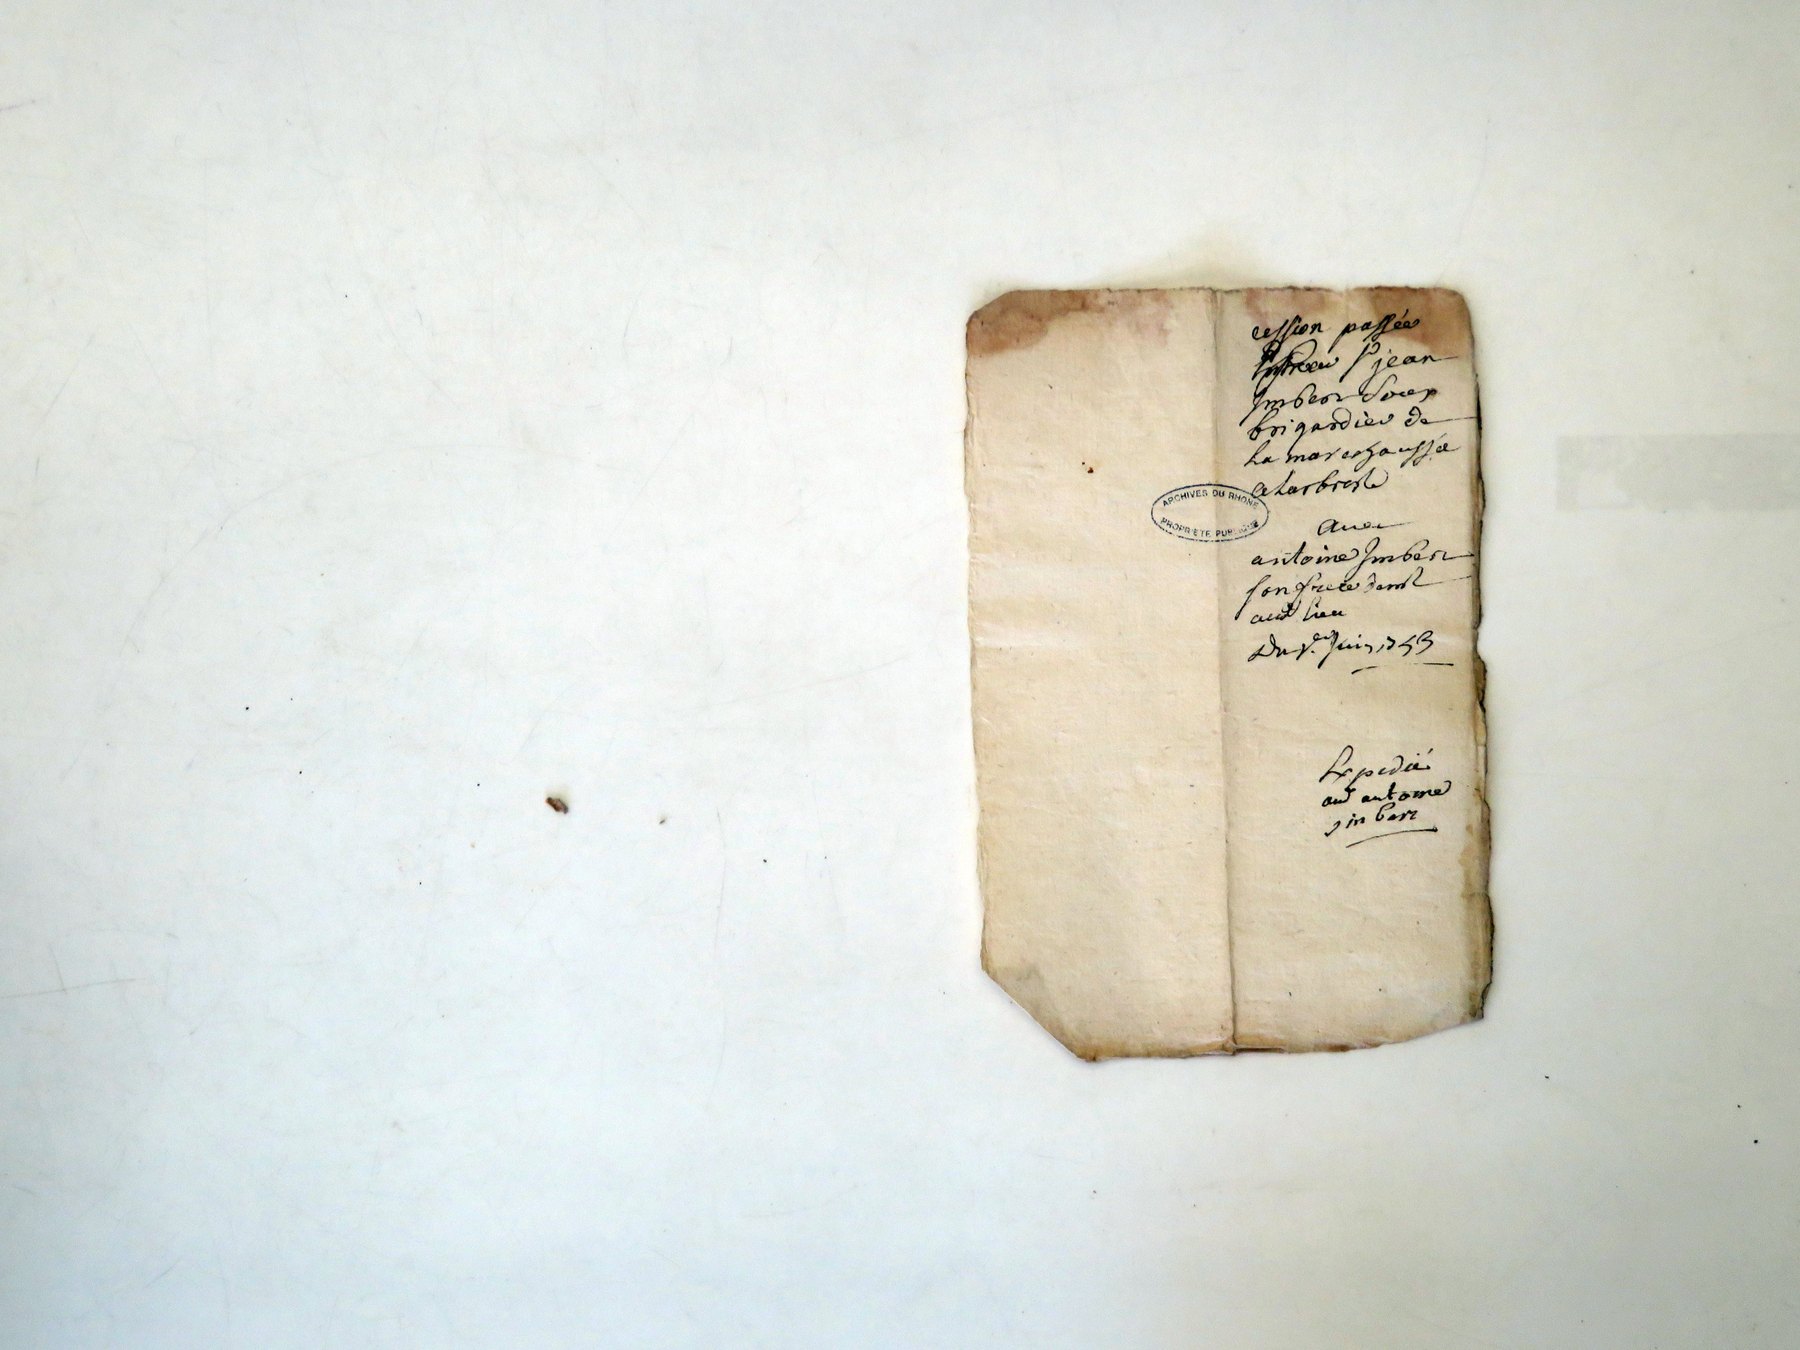 cession passée
Entre Sr jean
Imbert sous
brigardier de
La marechaussée
a Larbresle
ARCHIVES DU RHONE
PROPRIETE PUBLIQUE
avec
antoine Imbert
son frere demt
audt lieu
Du Juin 1753
Expedié
aud antoine
imbert